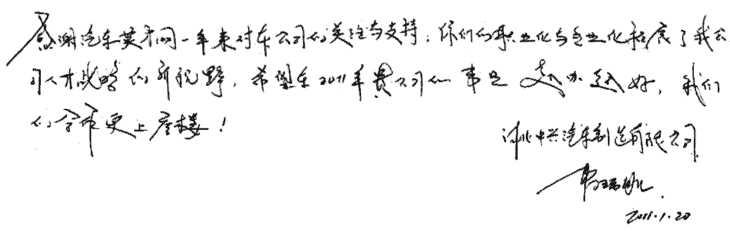 感谢汽车英才网一年来对本公司的关注与支持,你们的职业化与专业化拓展了我公
司人才战略的新视野,希望在2011年贵公司的事业越办越好,我们
的合作更上层楼!
河北中兴汽车制造有限公司
2011.1.20